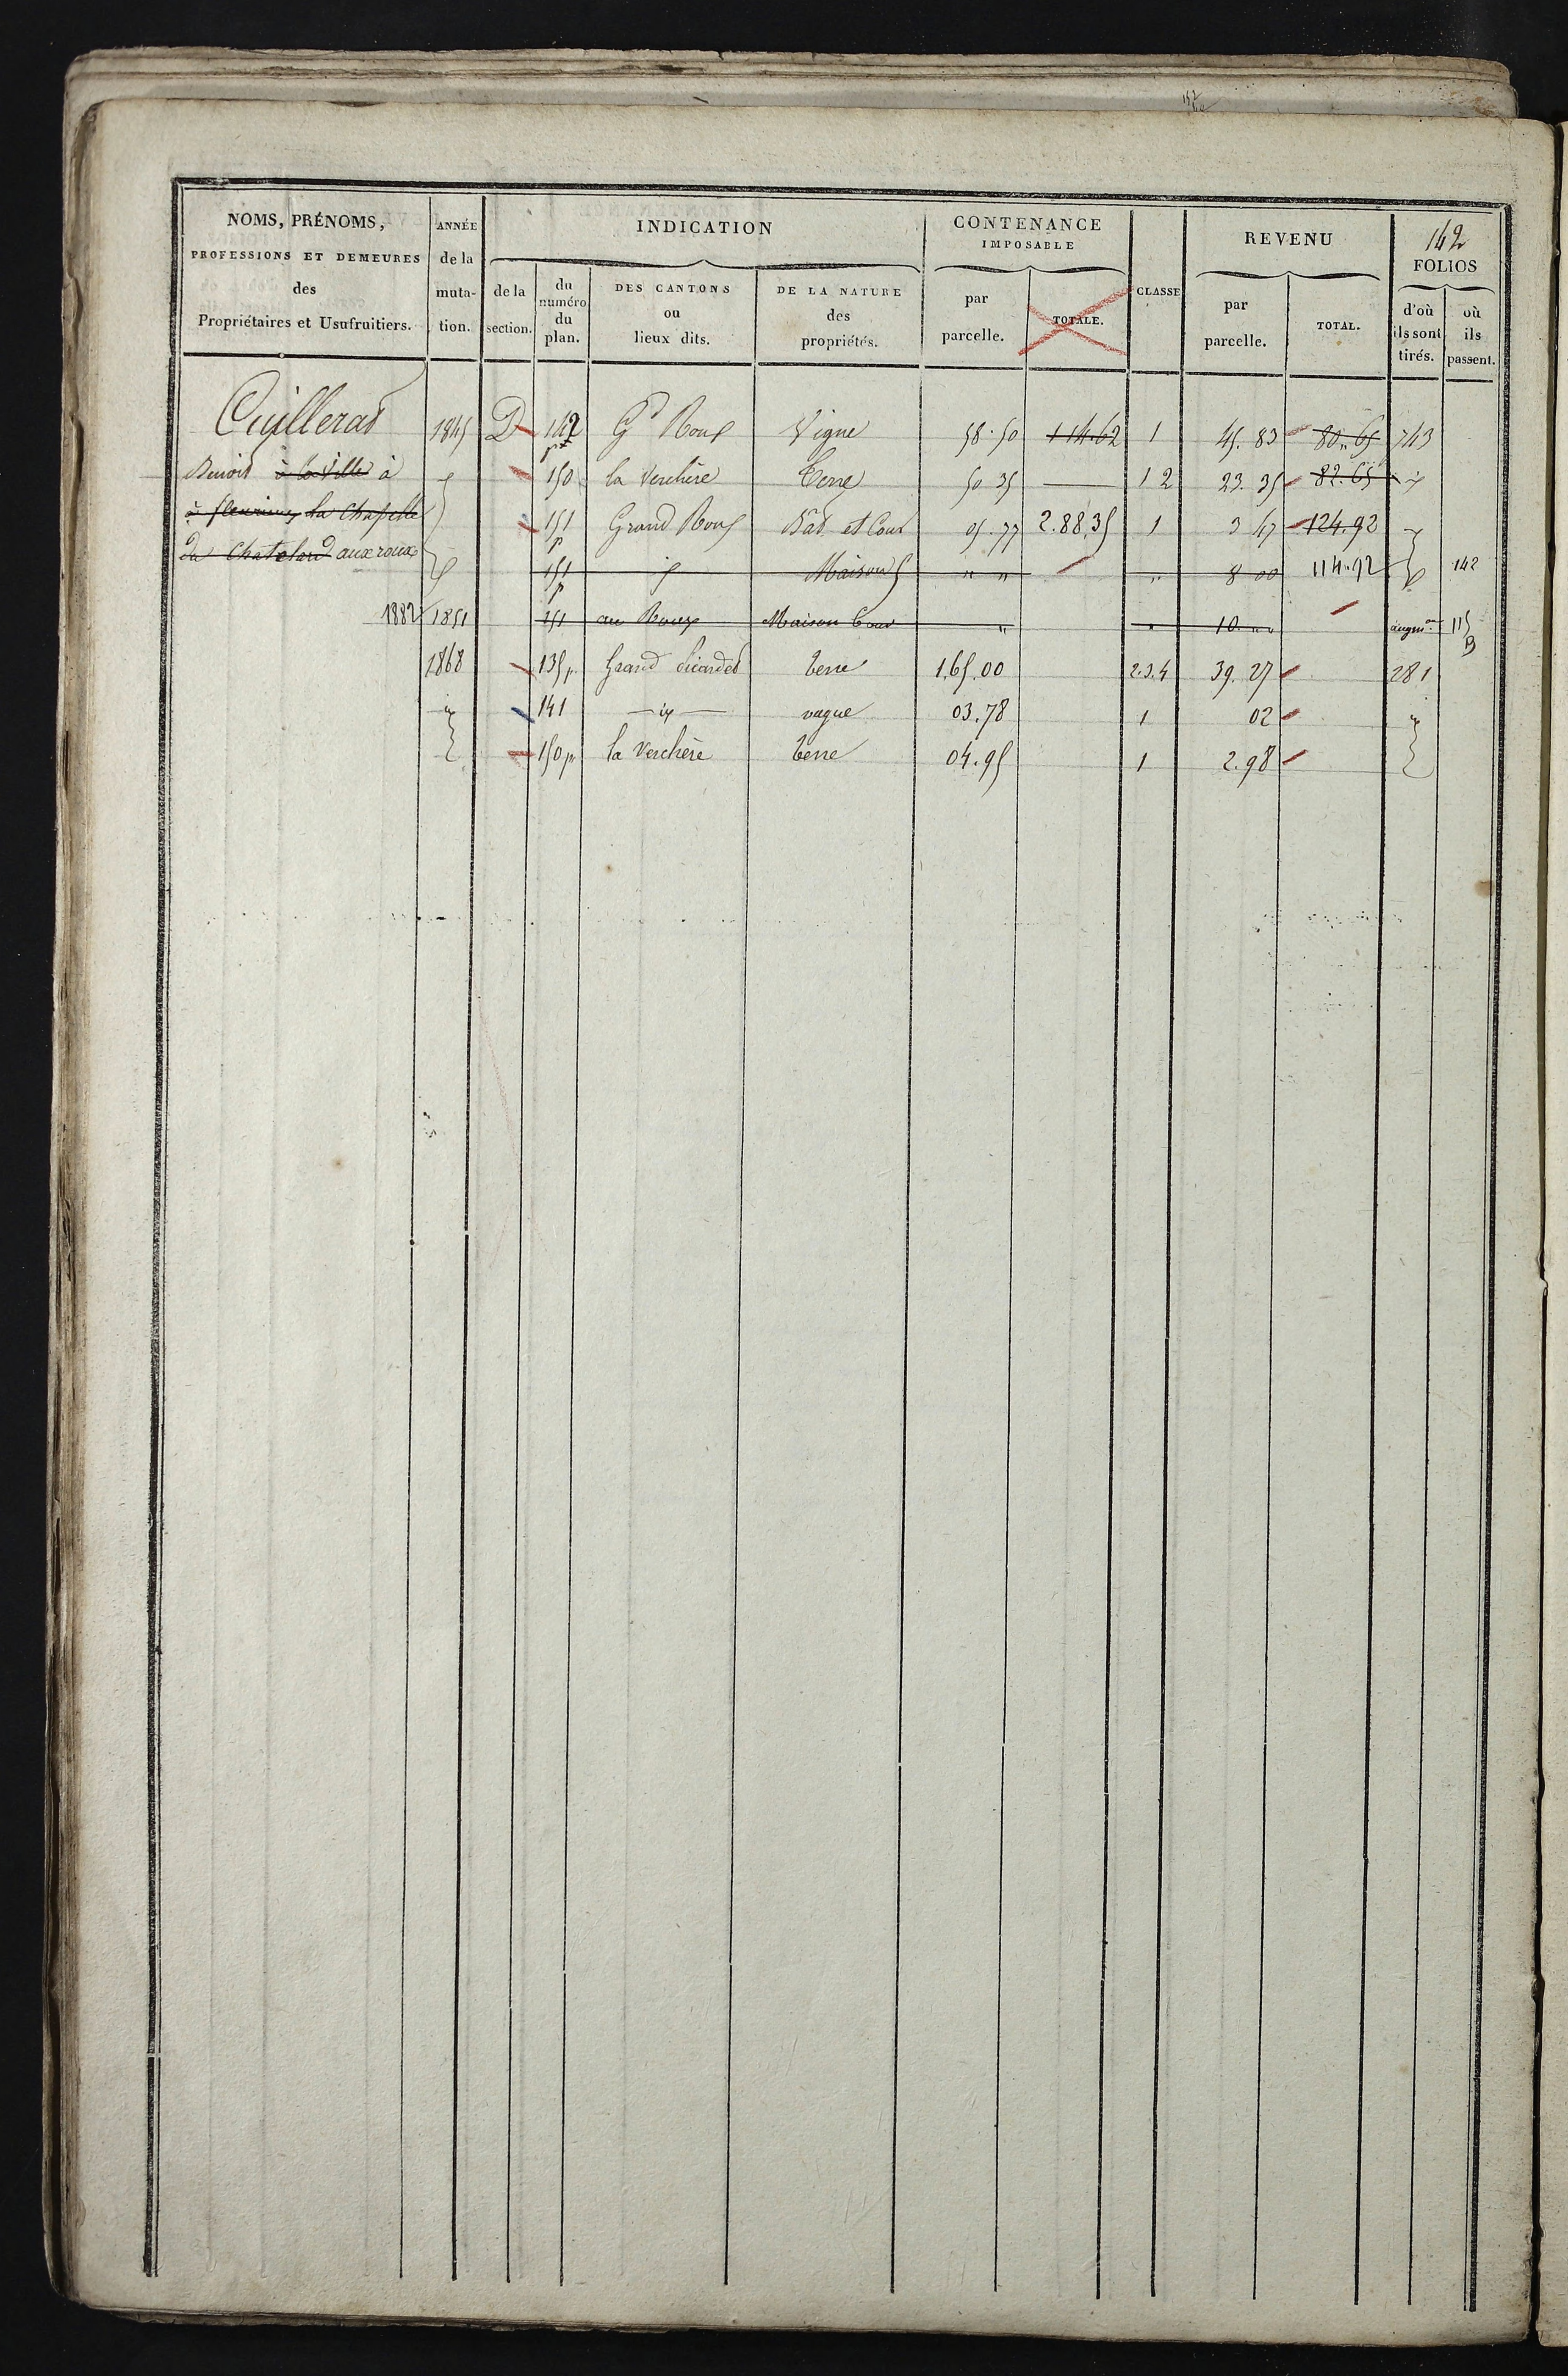 142
NOMS, PRÉNOMS, PROFESSIONS ET DEMEURES des Propriétaires et Usufruitiers.
ANNÉE de la muta- tion.
INDICATION
de la section.
du numéro du plan.
DES CANTONS ou lieux dits.
DE LA NATURE des propriétés.
CONTENANCE IMPOSABLE
par parcelle.
TOTALE.
CLASSE
REVENU
par parcelle.
TOTAL.
FOLIOS
d'où ils sont tirés.
où ils passent.
Cuillerat 1845 D 142 p Gd Roux Vigne 58.50 114.62 1 45.83 80.65 743
Benoit à la ville à 150 la Verchère Terre 50 35 1 2 23.35 82.65
à fleurieux la Chapelle 151 p Grand Roux Bat et Cour 05.77 2.88.35 1 3 47 124.92
du Chatelard aux roux 151 p Maison " " " 8 00 114.92 142
1882 1851 151 au Roux Maison Cour " " 10 " " augmon 115 B
1868 135 p. Grand terre 1.65.00 2.3.4 39.27 281
141 vague 03.78 1 02
150 p. la Verchère terre 04.95 1 2.98